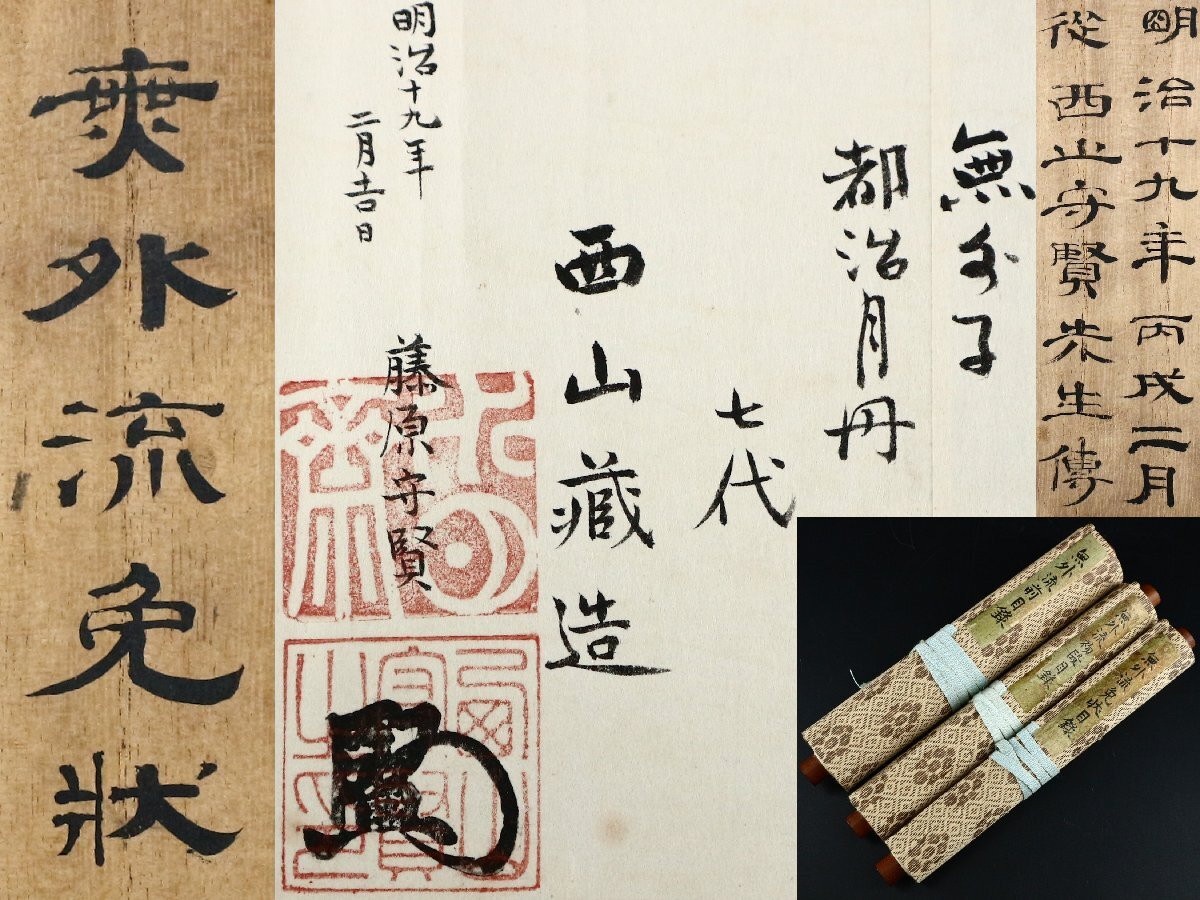 無外流免狀
明治十九年丙戌二月
從西山守賢先生傳
無外子
都治月丹
七代
西山藏造
明治十九年
二月吉日
藤原守賢
無外流前目錄
無外流免状目錄